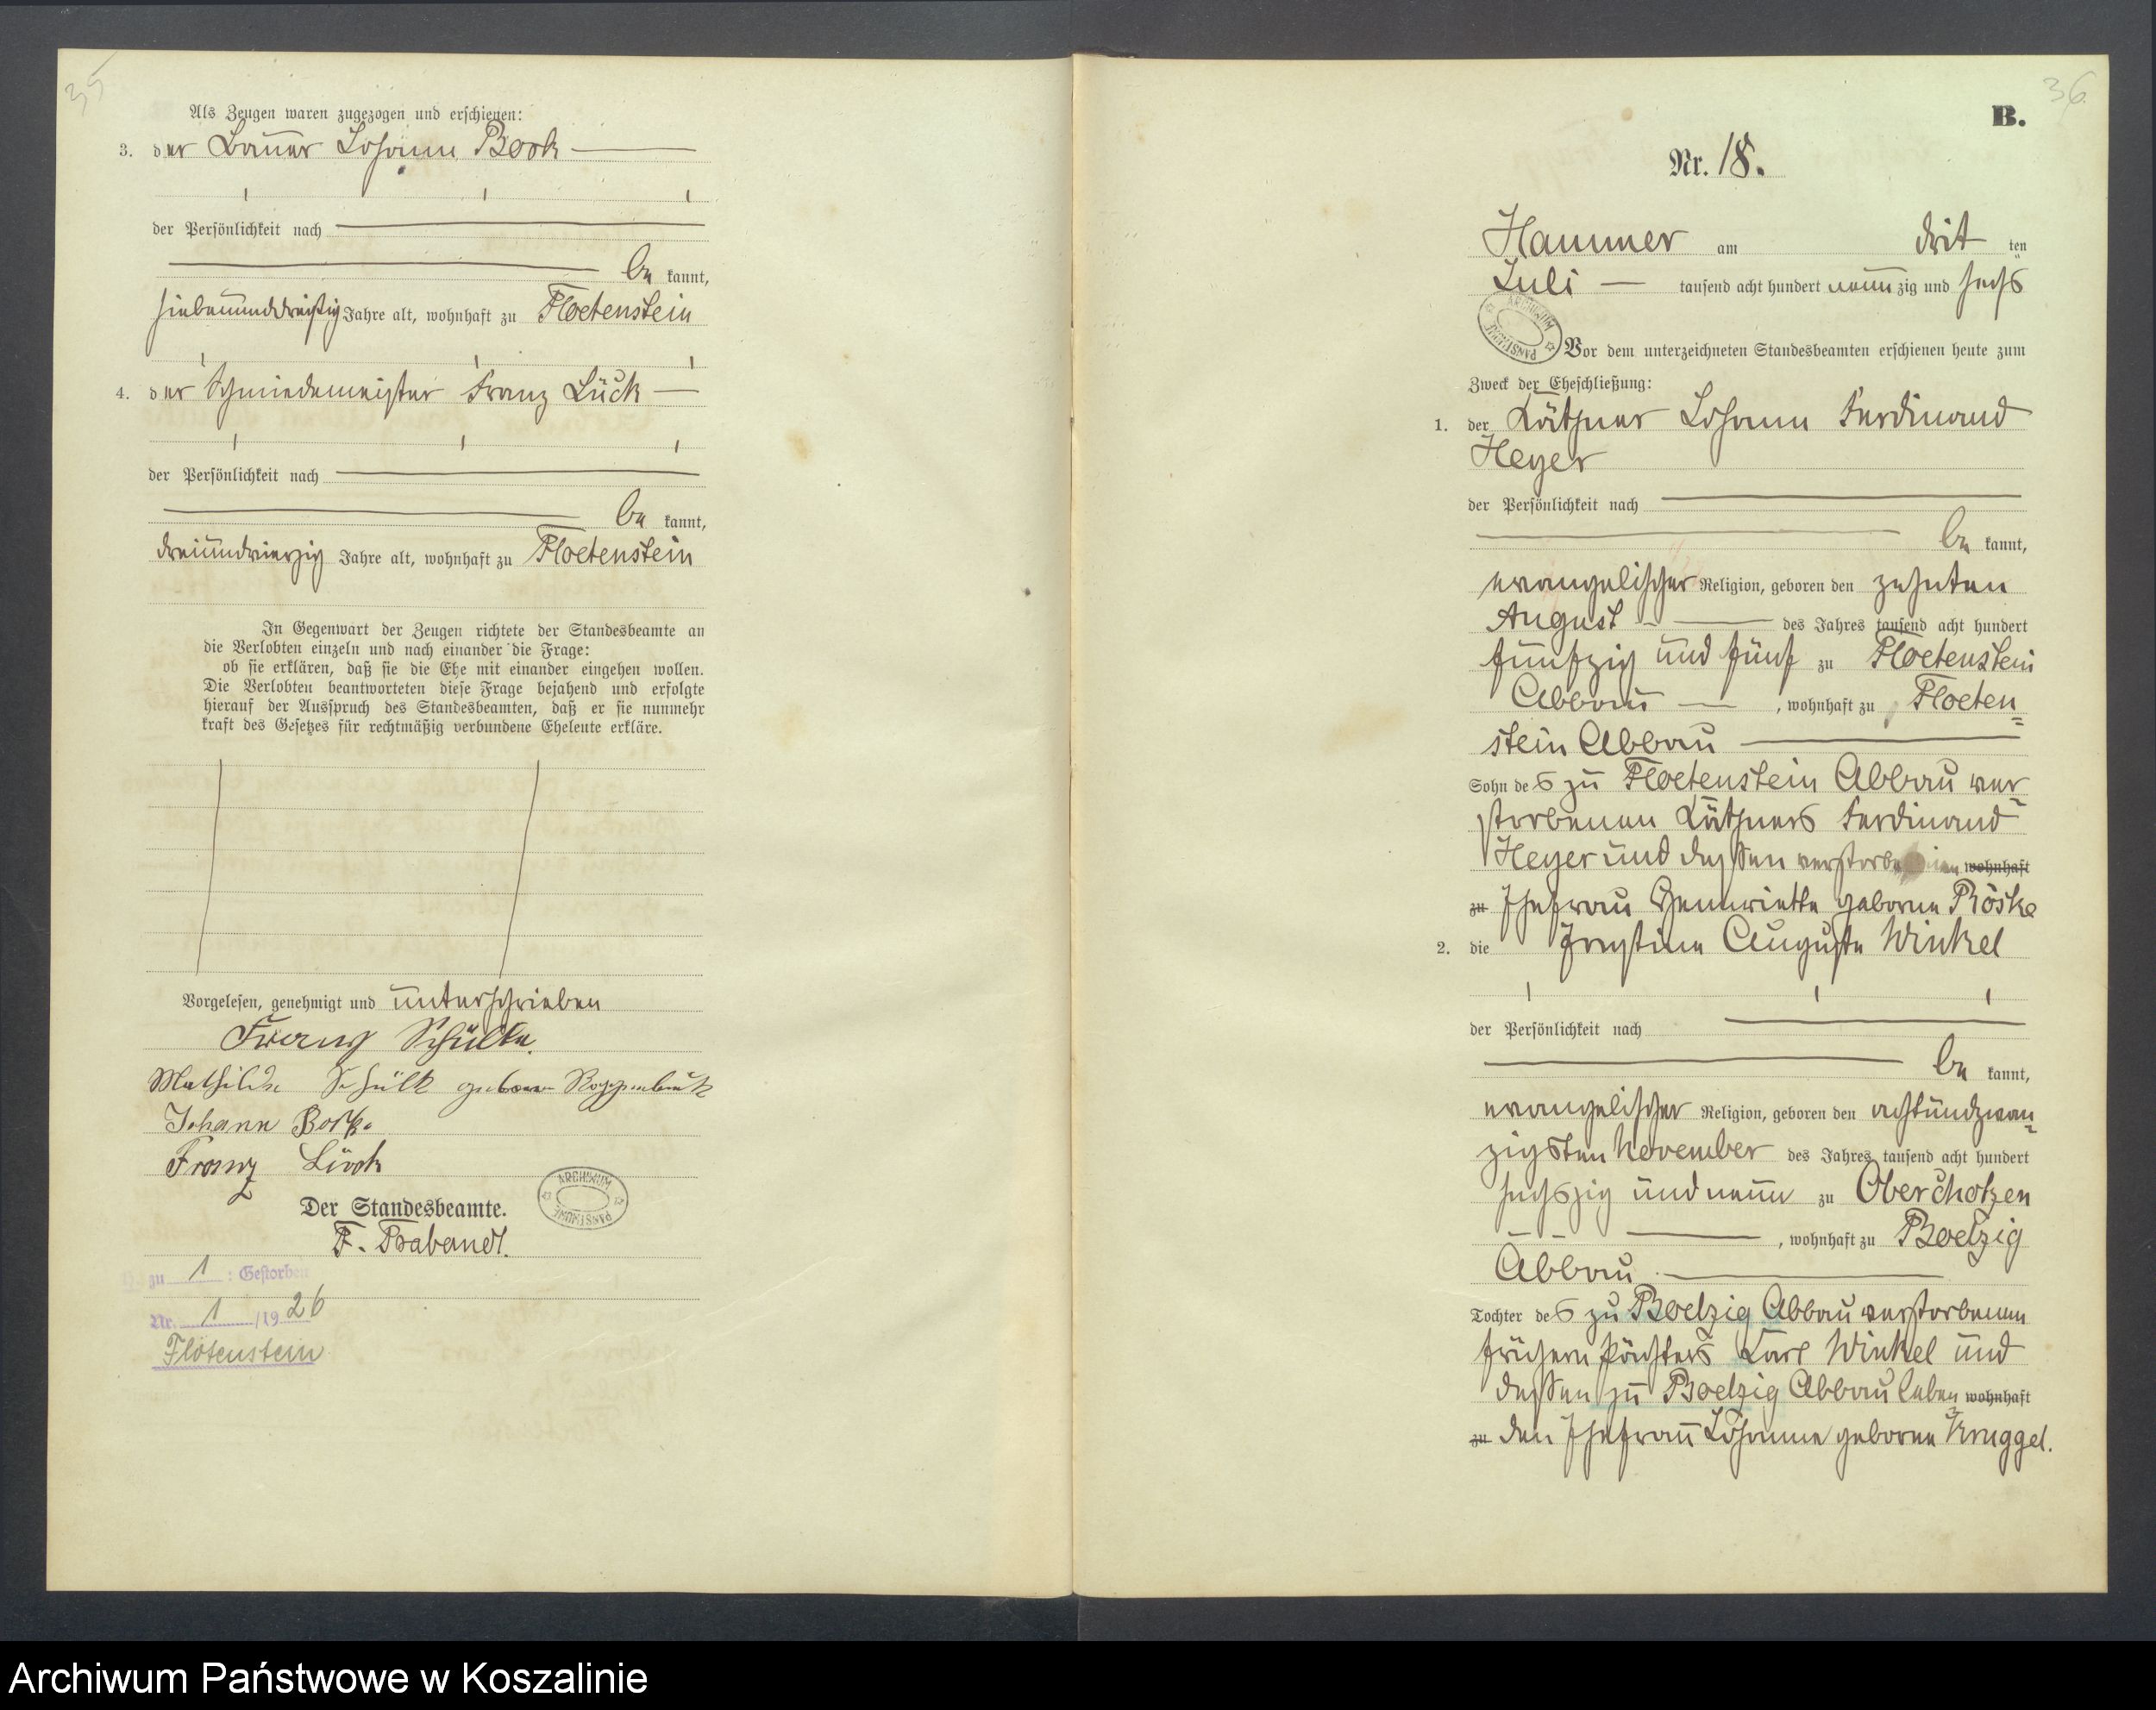 35
Als Zeugen waren zugezogen und erschienen:
3. der Bauer Johann Book
der Persönlichkeit nach
be kannt,
siebenunddreißig Jahre alt, wohnhaft zu Floetenstein
4. der Schmiedemeister Franz Lück
der Persönlichkeit nach
be kannt,
dreiundvierzig Jahre alt, wohnhaft zu Floetenstein
In Gegenwart der Zeugen richtete der Standesbeamte an
die Verlobten einzeln und nach einander die Frage:
ob sie erklären, daß sie die Ehe mit einander eingehen wollen.
Die Verlobten beantworteten diese Frage bejahend und erfolgte
hierauf der Ausspruch des Standesbeamten, daß er sie nunmehr
kraft des Gesetzes für rechtmäßig verbundene Eheleute erkläre.
Vorgelesen, genehmigt und unterschrieben
Franz Schülke.
Mathilde Schülk geboren
Johann
Franz Lück
Der Standesbeamte.
F. Brabandt.
ARCHIWUM PAŃSTWOWE
zu 1 : Gestorben
Nr. 1 /1926
Flötenstein
36
B.
Nr. 18.
Hammer am drit ten
Juli tausend acht hundert neun zig und sechs
ARCHIWUM PAŃSTWOWE
Vor dem unterzeichneten Standesbeamten erschienen heute zum
Zweck der Eheschließung:
1. der Käthner Johann Ferdinand
Heyer
der Persönlichkeit nach
be kannt,
evangelischer Religion, geboren den zehnten
August des Jahres tausend acht hundert
fünfzig und fünf zu Floetenstein
Abbau, wohnhaft zu Floeten=
stein Abbau
Sohn des zu Floetenstein Abbau ver=
storbenen Käthners Ferdinand
Heyer und dessen verstorbenen wohnhaft
zu Ehefrau Henriette geborne Röske
2. die Ernstine Auguste Winkel
der Persönlichkeit nach
be kannt,
evangelischer Religion, geboren den achtundzwan=
zigsten November des Jahres tausend acht hundert
sechszig und neun zu Oberchotzen
, wohnhaft zu Boelzig
Abbau
Tochter des zu Boelzig Abbau verstorbenen
frühern Pächters Karl Winkel und
dessen zu Boelzig Abbau leben= wohnhaft
zu den Ehefrau Johanne geborne Kruggel.
Archiwum Państwowe w Koszalinie